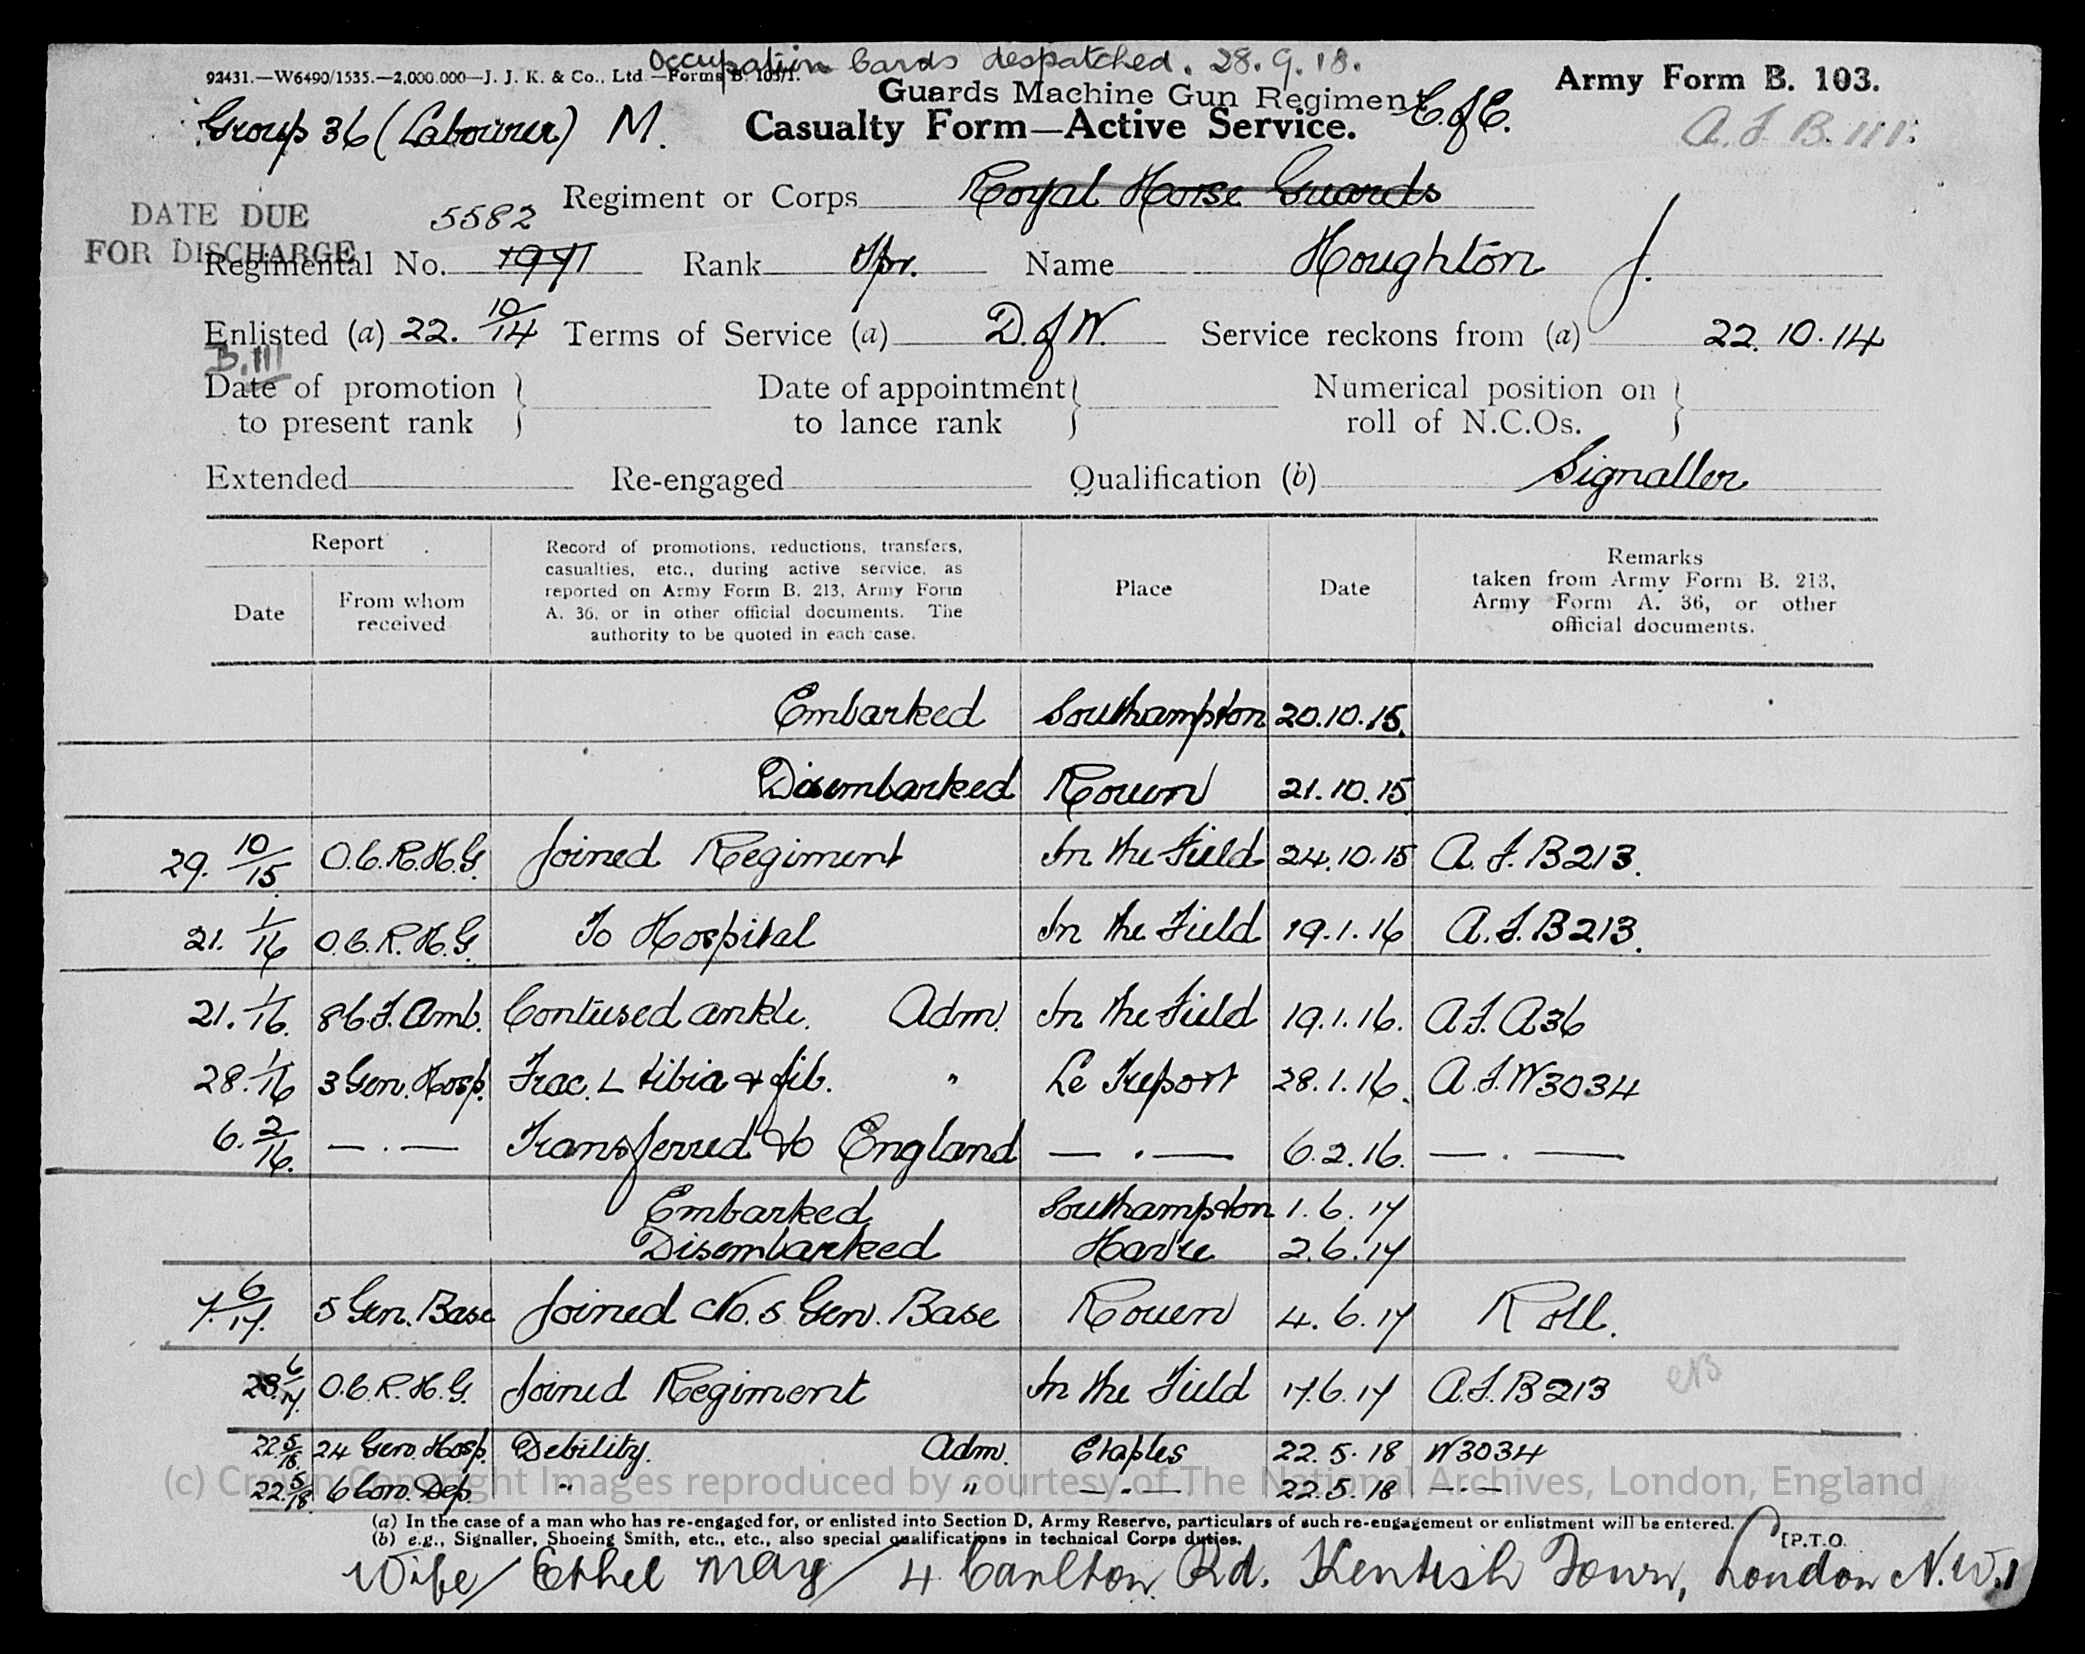 Occupation Cards despatched. 28.9.18.
92431.—W6490/1535.—2,000,000—J. J. K. & Co., Ltd.—Forms B. 103/1.
Guards Machine Gun Regiment
Army Form B. 103.
Group 36 (Labourer) M.
Casualty Form—Active Service.
C. of E.
A. F. B. 111.
Regiment or Corps Royal Horse Guards
DATE DUE
FOR DISCHARGE
5582
Regimental No. 1971 Rank Tpr. Name Houghton J.
Enlisted (a) 22. 10/14 Terms of Service (a) D. of W. Service reckons from (a) 22. 10. 14
B.111
Date of promotion to present rank } Date of appointment to lance rank } Numerical position on roll of N.C.Os. }
Extended Re-engaged Qualification (b) Signaller
Report
Date From whom received
Record of promotions, reductions, transfers,
casualties, etc., during active service, as
reported on Army Form B. 213, Army Form
A. 36, or in other official documents. The
authority to be quoted in each case.
Place
Date
Remarks
taken from Army Form B. 213,
Army Form A. 36, or other
official documents.
Embarked Southampton 20.10.15.
Disembarked Rouen 21.10.15
29. 10/15. O.C.R.H.G. Joined Regiment In the Field 24.10.15 A.F.B213.
21. 1/16 O.C.R.H.G. To Hospital In the Field 19.1.16 A.F.B213.
21. 1/16. 86 F. Amb. Contused ankle. Adm. In the Field 19.1.16. A.F. A36
28. 1/16 3 Gen. Hosp. Frac. L tibia & fib. " Le Treport 28.1.16. A.F.W3034
6. 2/16. — . — Transferred to England — . — 6.2.16. — . —
Embarked Southampton 1.6.17
Disembarked Havre 2.6.17
7. 6/17. 5 Gen. Base Joined No. 5 Gen. Base Rouen 4.6.17 Roll.
23. 6/17. O.C.R.H.G. Joined Regiment In the Field 17.6.17 A.F.B213
22. 5/18. 24 Gen. Hosp. Debility. Adm. Etaples 22.5.18 W3034
22. 5/18 6 Con. Dep. " " — . — 22.5.18 — . —
(c) Crown Copyright Images reproduced by courtesy of The National Archives, London, England
(a) In the case of a man who has re-engaged for, or enlisted into Section D, Army Reserve, particulars of such re-engagement or enlistment will be entered.
(b) e.g., Signaller, Shoeing Smith, etc., etc., also special qualifications in technical Corps duties.
[P.T.O.
Wife/ Ethel May/ 4 Carlton Rd. Kentish Town, London N.W.1